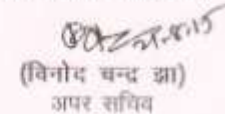 (विनोद चन्द्र झा)
अपर सचिव